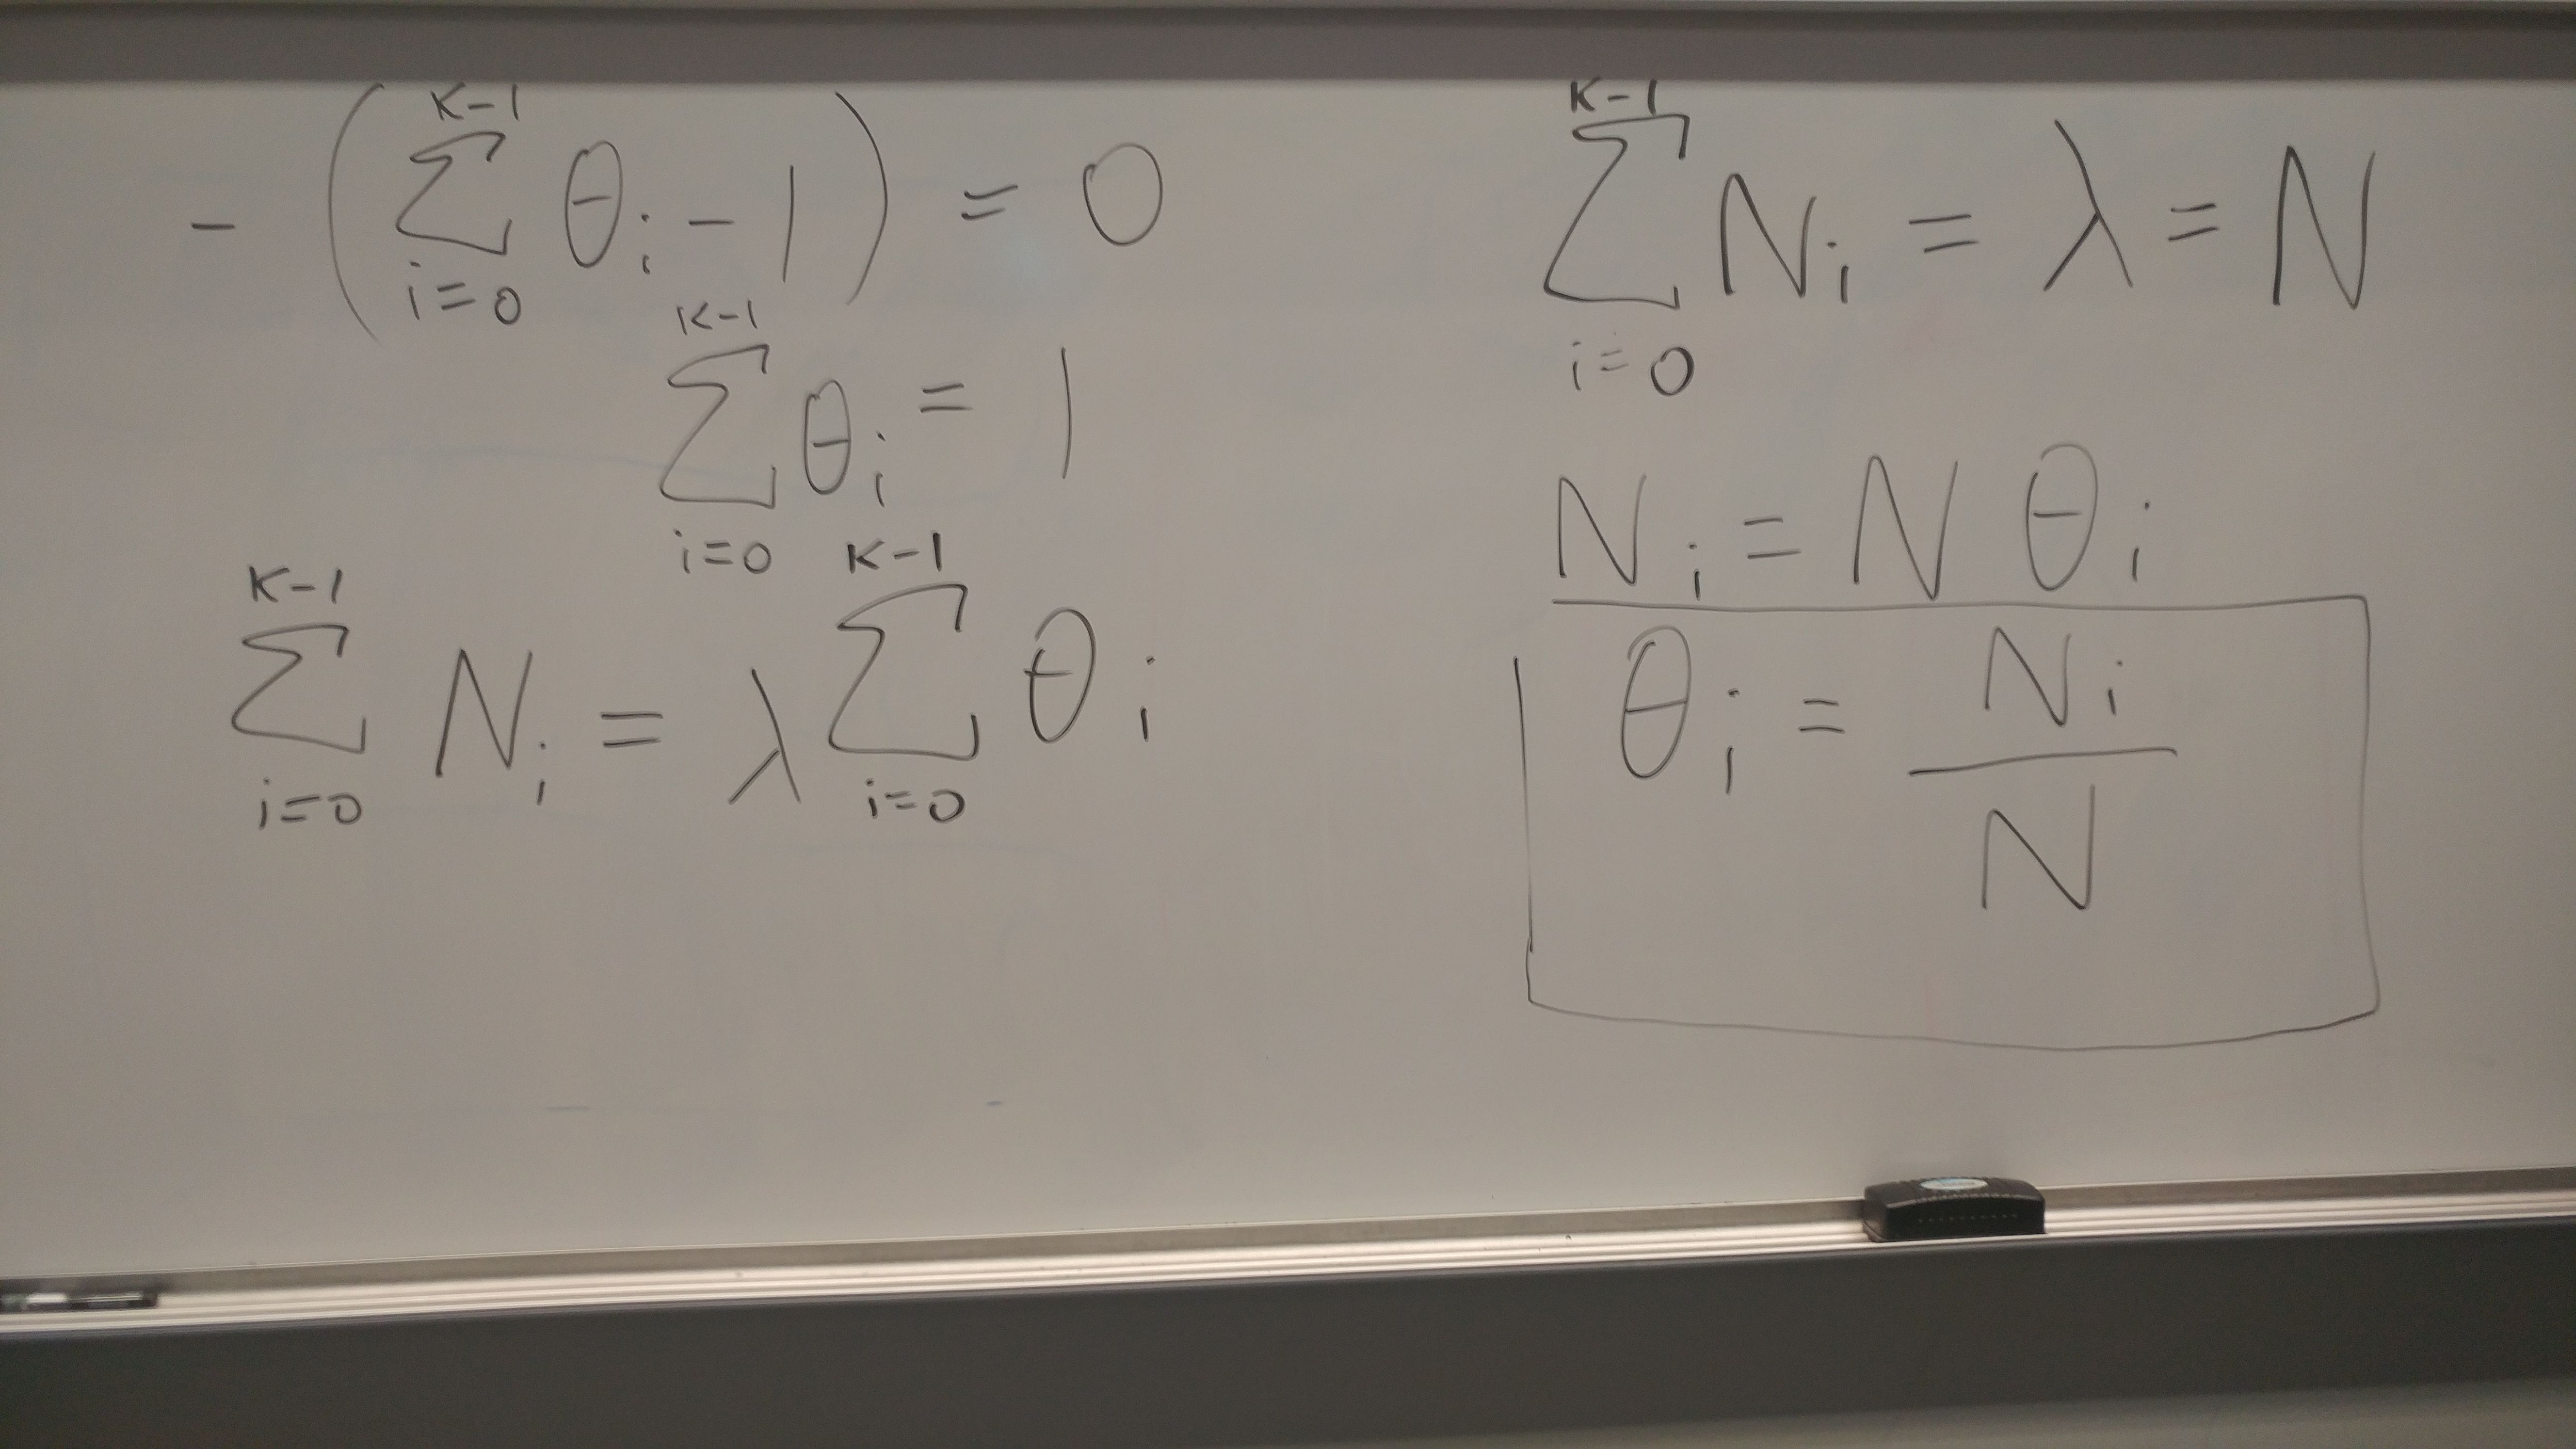 $-\left(\sum_{i=0}^{K-1} \theta_i - 1\right) = 0$
$\sum_{i=0}^{K-1} \theta_i = 1$
$\sum_{i=0}^{K-1} N_i = \lambda \sum_{i=0}^{K-1} \theta_i$
$\sum_{i=0}^{K-1} N_i = \lambda = N$
$N_i = N \theta_i$
$\theta_i = \frac{N_i}{N}$